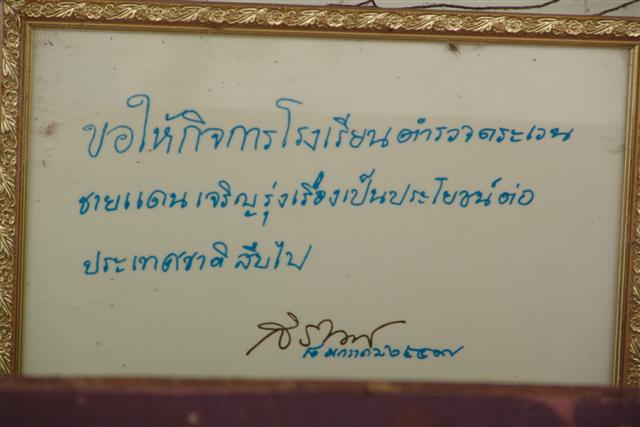 ขอให้กิจการโรงเรียนตำรวจตระเวน
ชายแดน เจริญรุ่งเรื่องเป็นประโยชน์ต่อ
ประเทศชาติ สืบไป
มกราคม ๒๕๔๗